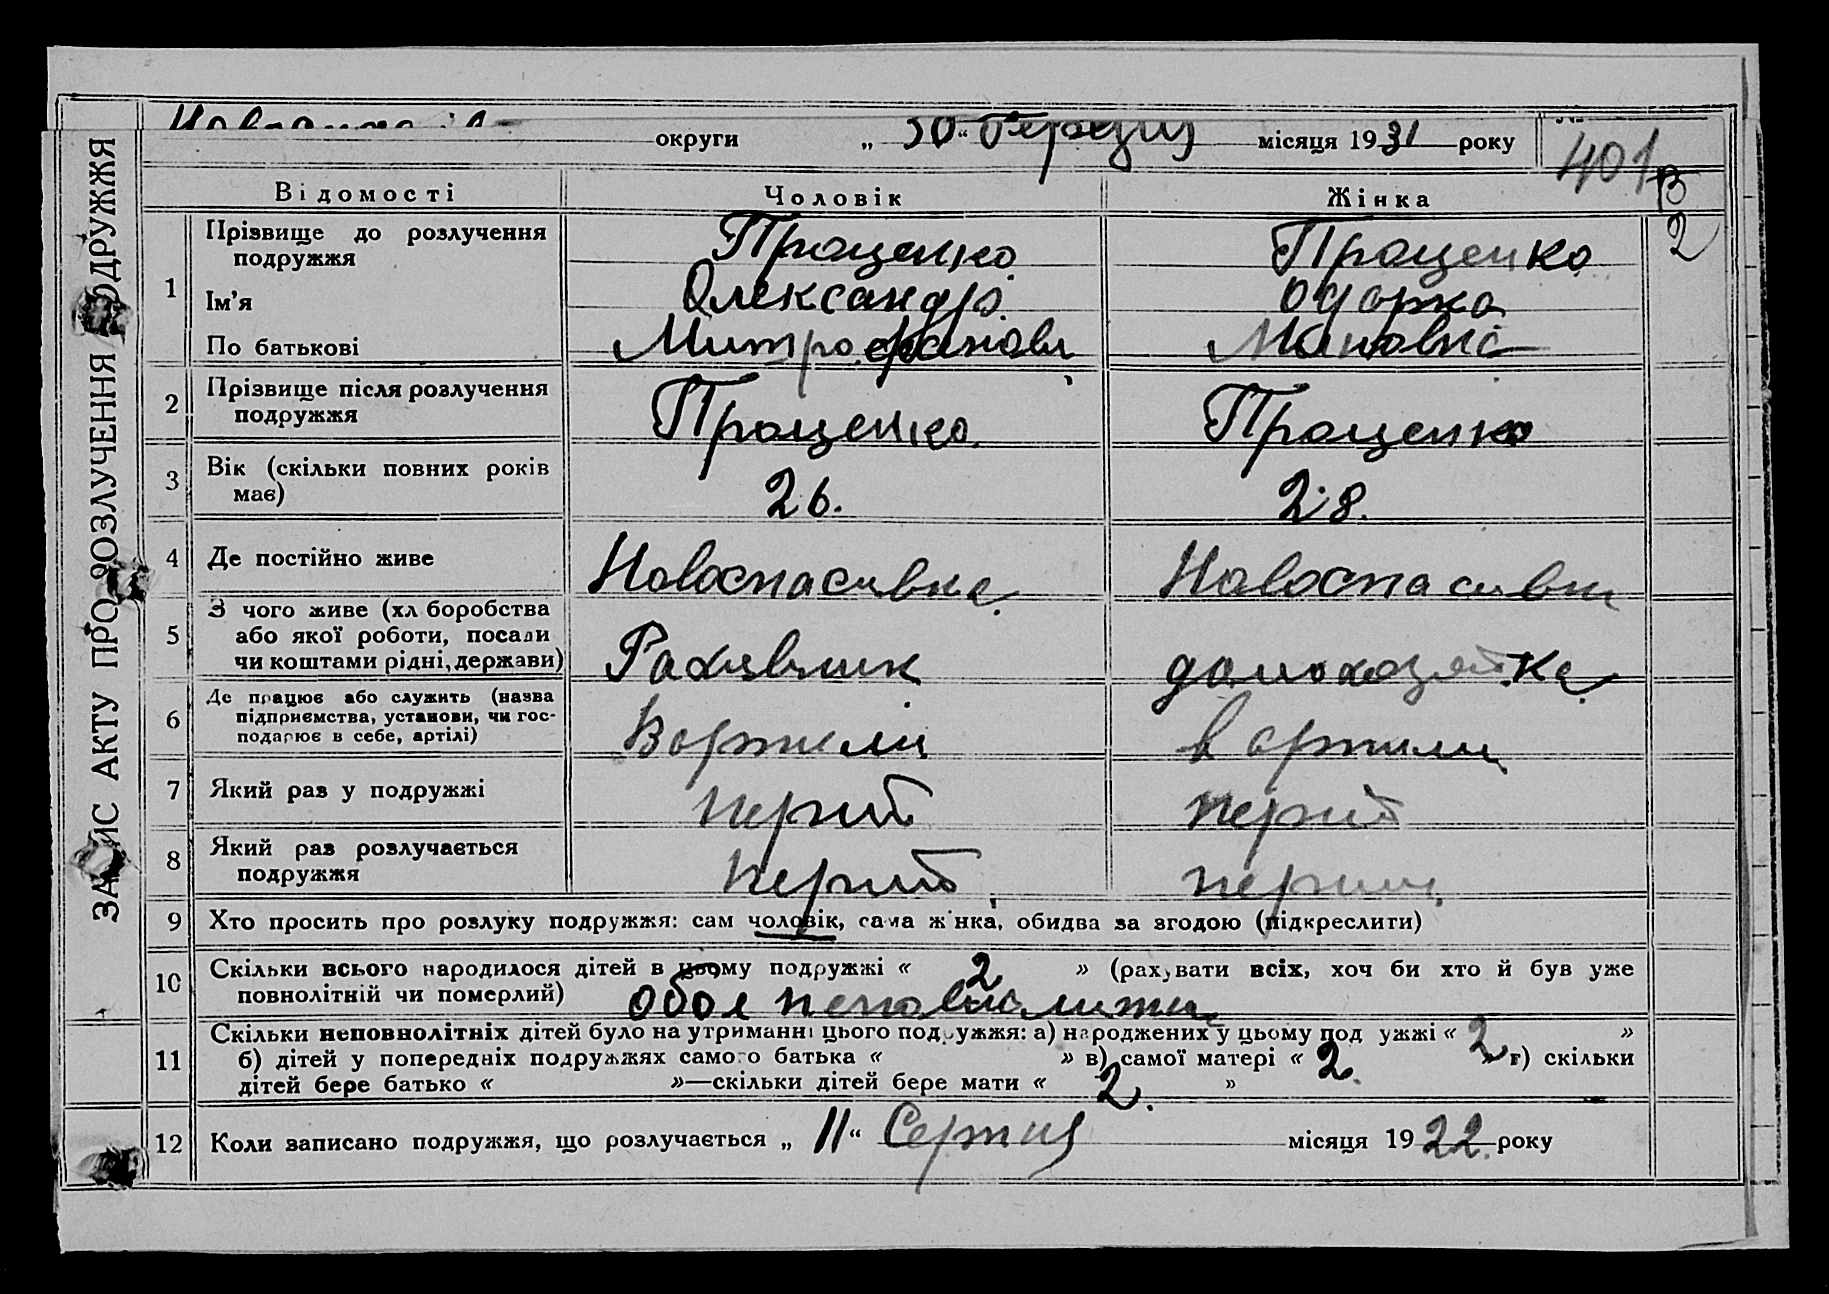 ЗАПИС АКТУ ПРО РОЗЛУЧЕННЯ ПОДРУЖЖЯ
округи „ 30 “ Березня місяця 1931 року № 401
В
2
Відомості Чоловік Жінка
1 Прізвище до розлучення подружжя Проценко Проценко
Ім’я Олександр Одарка
По батькові Митрофанови
2 Прізвище після розлучення подружжя Проценко Проценко
3 Вік (скільки повних років має) 26. 28.
4 Де постійно живе Новоспасивка Новоспасивка
5 З чого живе (хліборобства
або якої роботи, посади
чи коштами рідні, держави) Рахивник домохозяйка
6 Де працює або служить (назва
підприємства, установи, чи гос-
подарює в себе, артілі) В артили в артили
7 Який раз у подружжі перший перший
8 Який раз розлучається
подружжя перший перший
9 Хто просить про розлуку подружжя: сам чоловік, сама жінка, обидва за згодою (підкреслити)
10 Скільки всього народилося дітей в цьому подружжі « 2 » (рахувати всіх, хоч би хто й був уже
повнолітній чи померлий) обоє
11 Скільки неповнолітніх дітей було на утриманні цього подружжя: а) народжених у цьому подружжі « 2 »
б) дітей у попередніх подружжях самого батька « » в) самої матері « 2 » г) скільки
дітей бере батько « »—скільки дітей бере мати « 2. »
12 Коли записано подружжя, що розлучається „ 11 “ Серпня місяця 1922 року